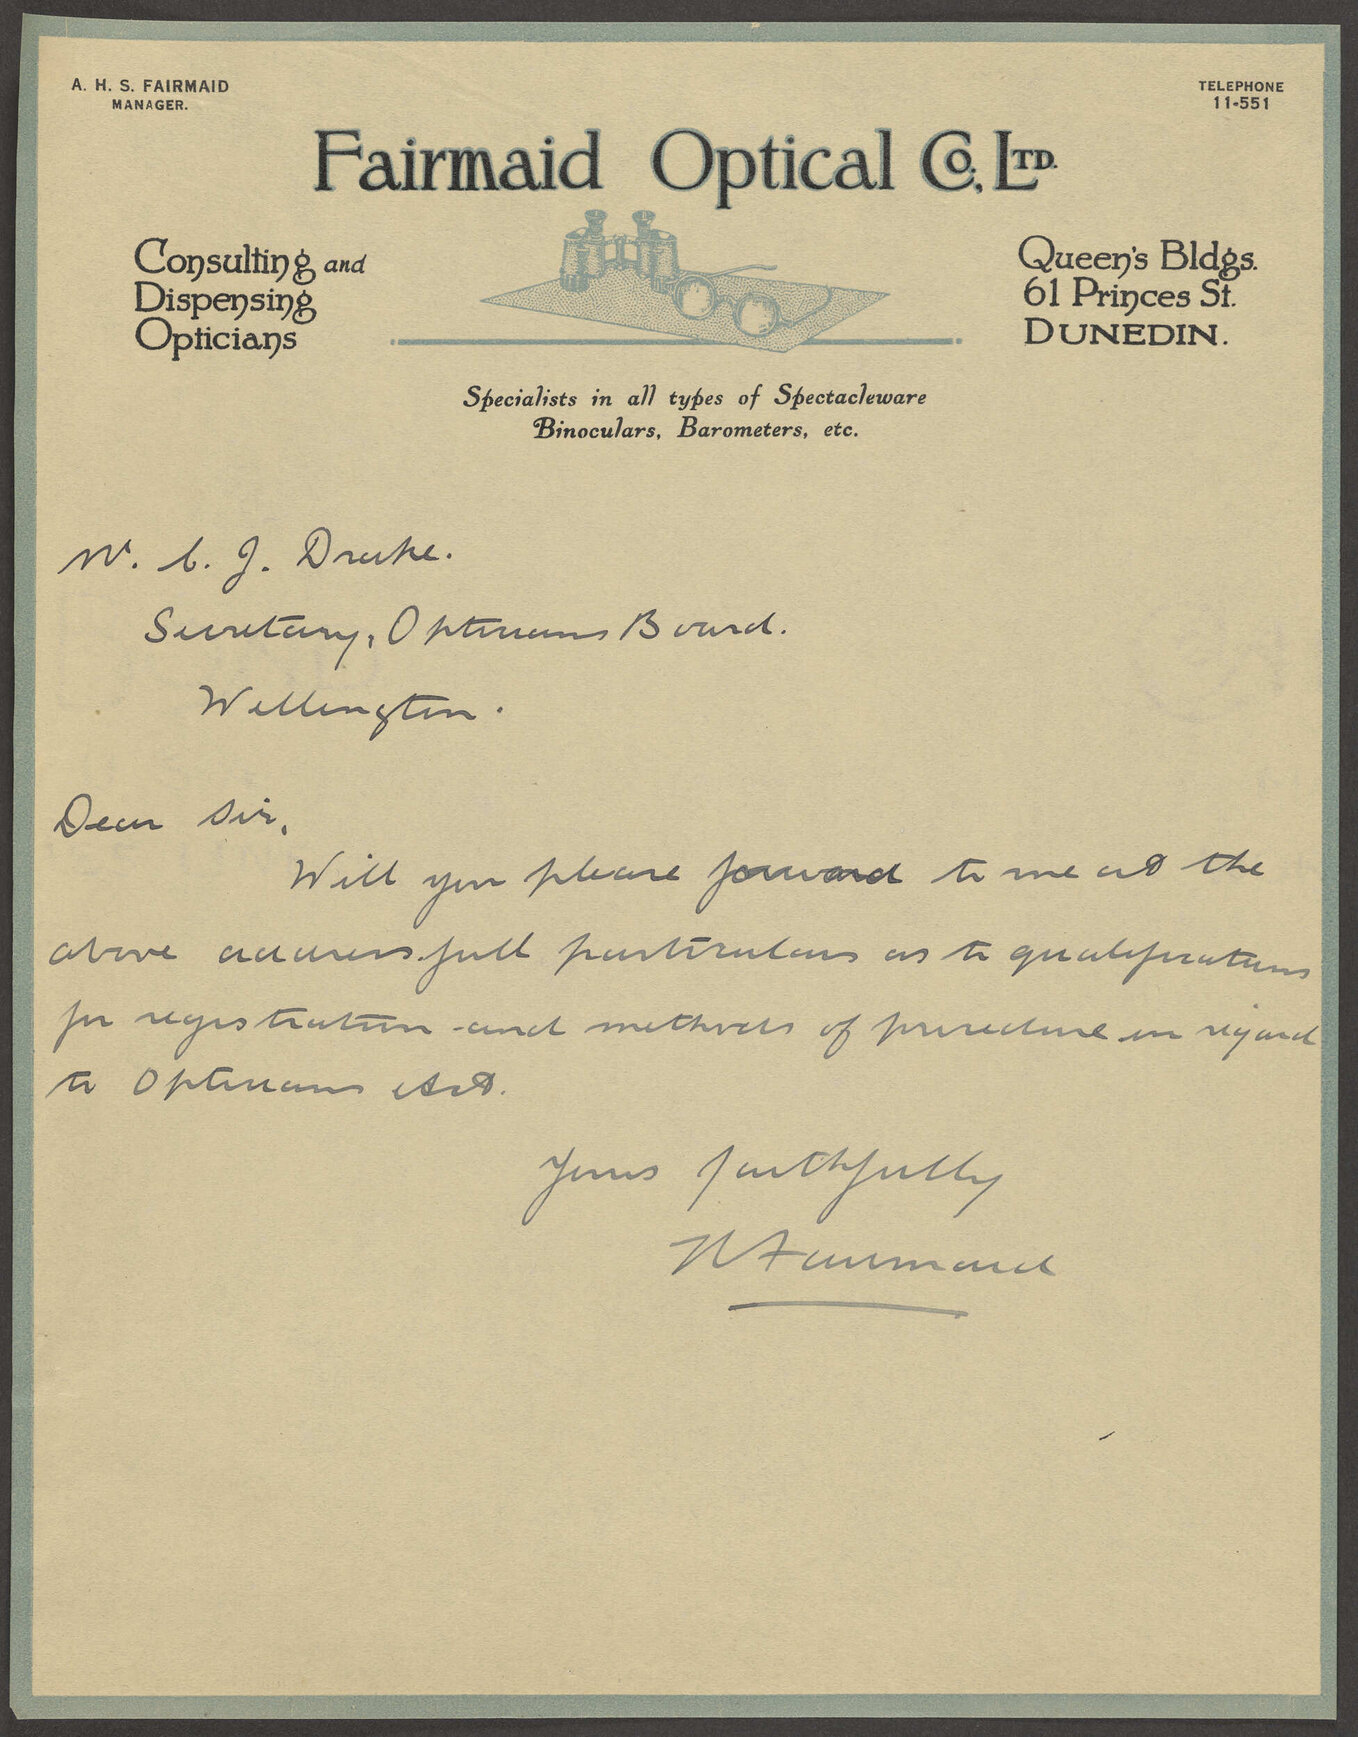 A. H. S. FAIRMAID
MANAGER.
TELEPHONE
11-551
Fairmaid Optical Co. Ltd.
Consulting and
Dispensing
Opticians
Queen's Bldgs.
61 Princes St.
DUNEDIN.
Specialists in all types of Spectacleware
Binoculars, Barometers, etc.
J. Drake.
Secretary, Opticians Board.
Wellington.
Dear Sir,
Will you please forward to me at the
above address full particulars as to qualifications
for registration and methods of procedure in regard
to Opticians Act.
Yours faithfully
Fairmaid